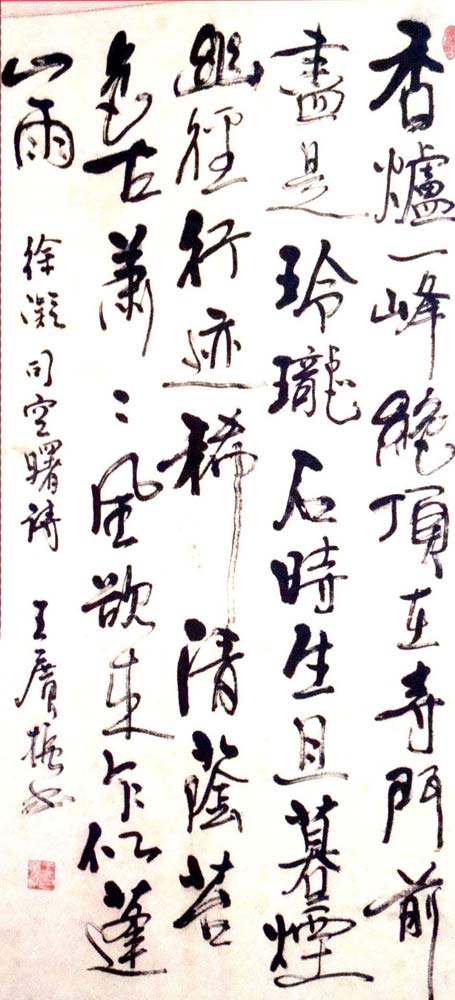 香爐一峰絕頂在寺門前
盡是玲瓏石時生旦暮煙
幽徑行迹稀清蔭苔
色古蕭〻風欲來乍似蓬
山雨
徐凝司空曙詩 王書